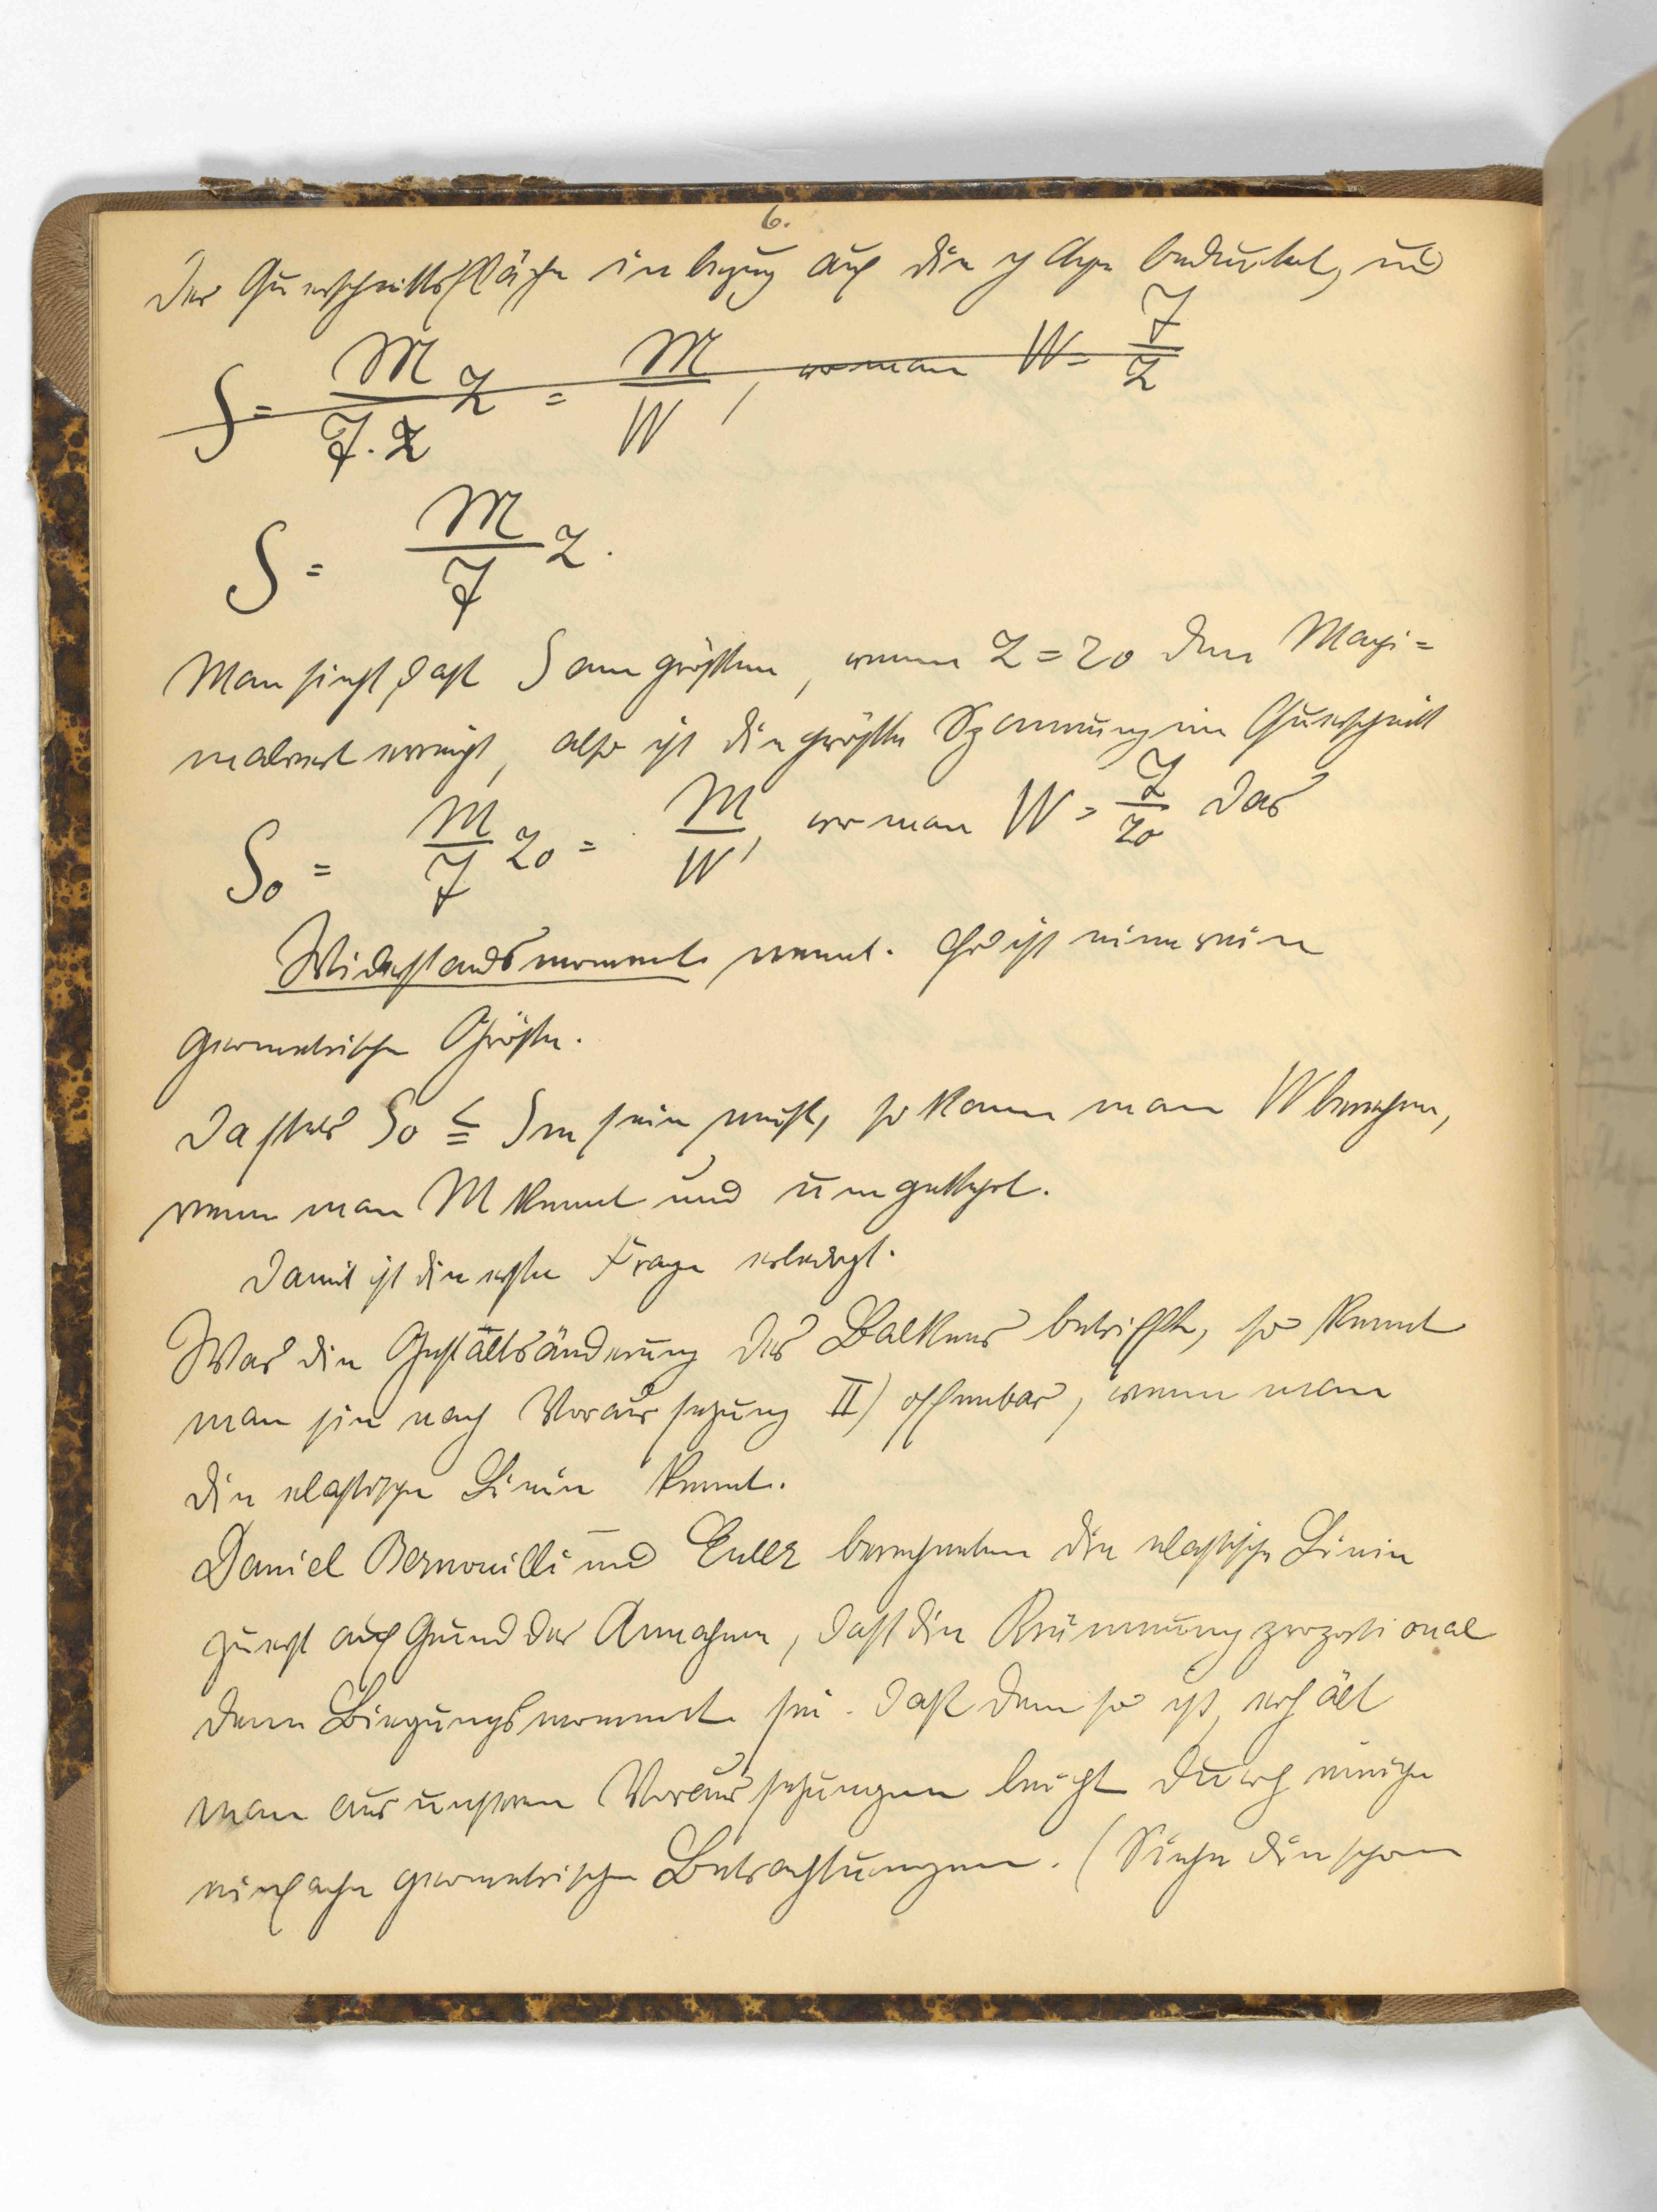 6.
der Querschnittsfläche in bezug auf die y Axe bedeutet, und
S = M/J·z z = M/W, wo man W = J/z
S = M/J z.
Man sieht, daß S am größten, wenn z = z0 den Maxi=
malwert erreicht, also ist die größte Spannung im Querschnitt
S0 = M/J z0 = M/W, wo man W = J/z0 das
Widerstandsmoment nennt. Es ist eine rein
geometrische Größe.
Da stets S0 ≦ Sm sein muß, so kann man W berechnen,
wenn man M kennt und umgekehrt.
Damit ist die erste Frage erledigt.
Was die Gestaltsänderung des Balkens betrifft, so kennt
man sie nach Voraussetzung II) offenbar, wenn man
die elastische Linie kennt.
Daniel Bernouilli und Euler berechneten die elastische Linie
zuerst auf Grund der Annahme, daß die Krümmung proportional
dem Biegungsmoment sei. Daß dem so ist, erhält
man aus unseren Voraussetzungen leicht durch einige
einfache geometrische Betrachtungen. (Siehe die schon